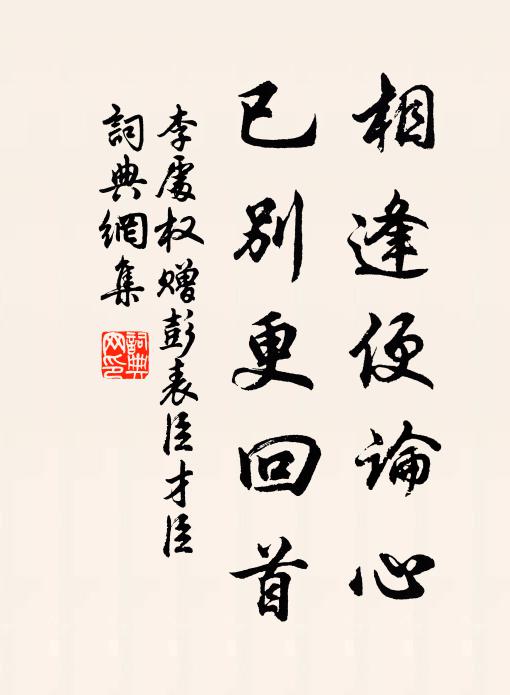 相逢便論心
已別更回首
李處权赠彭表臣才臣
詞典網集
詞典
网印